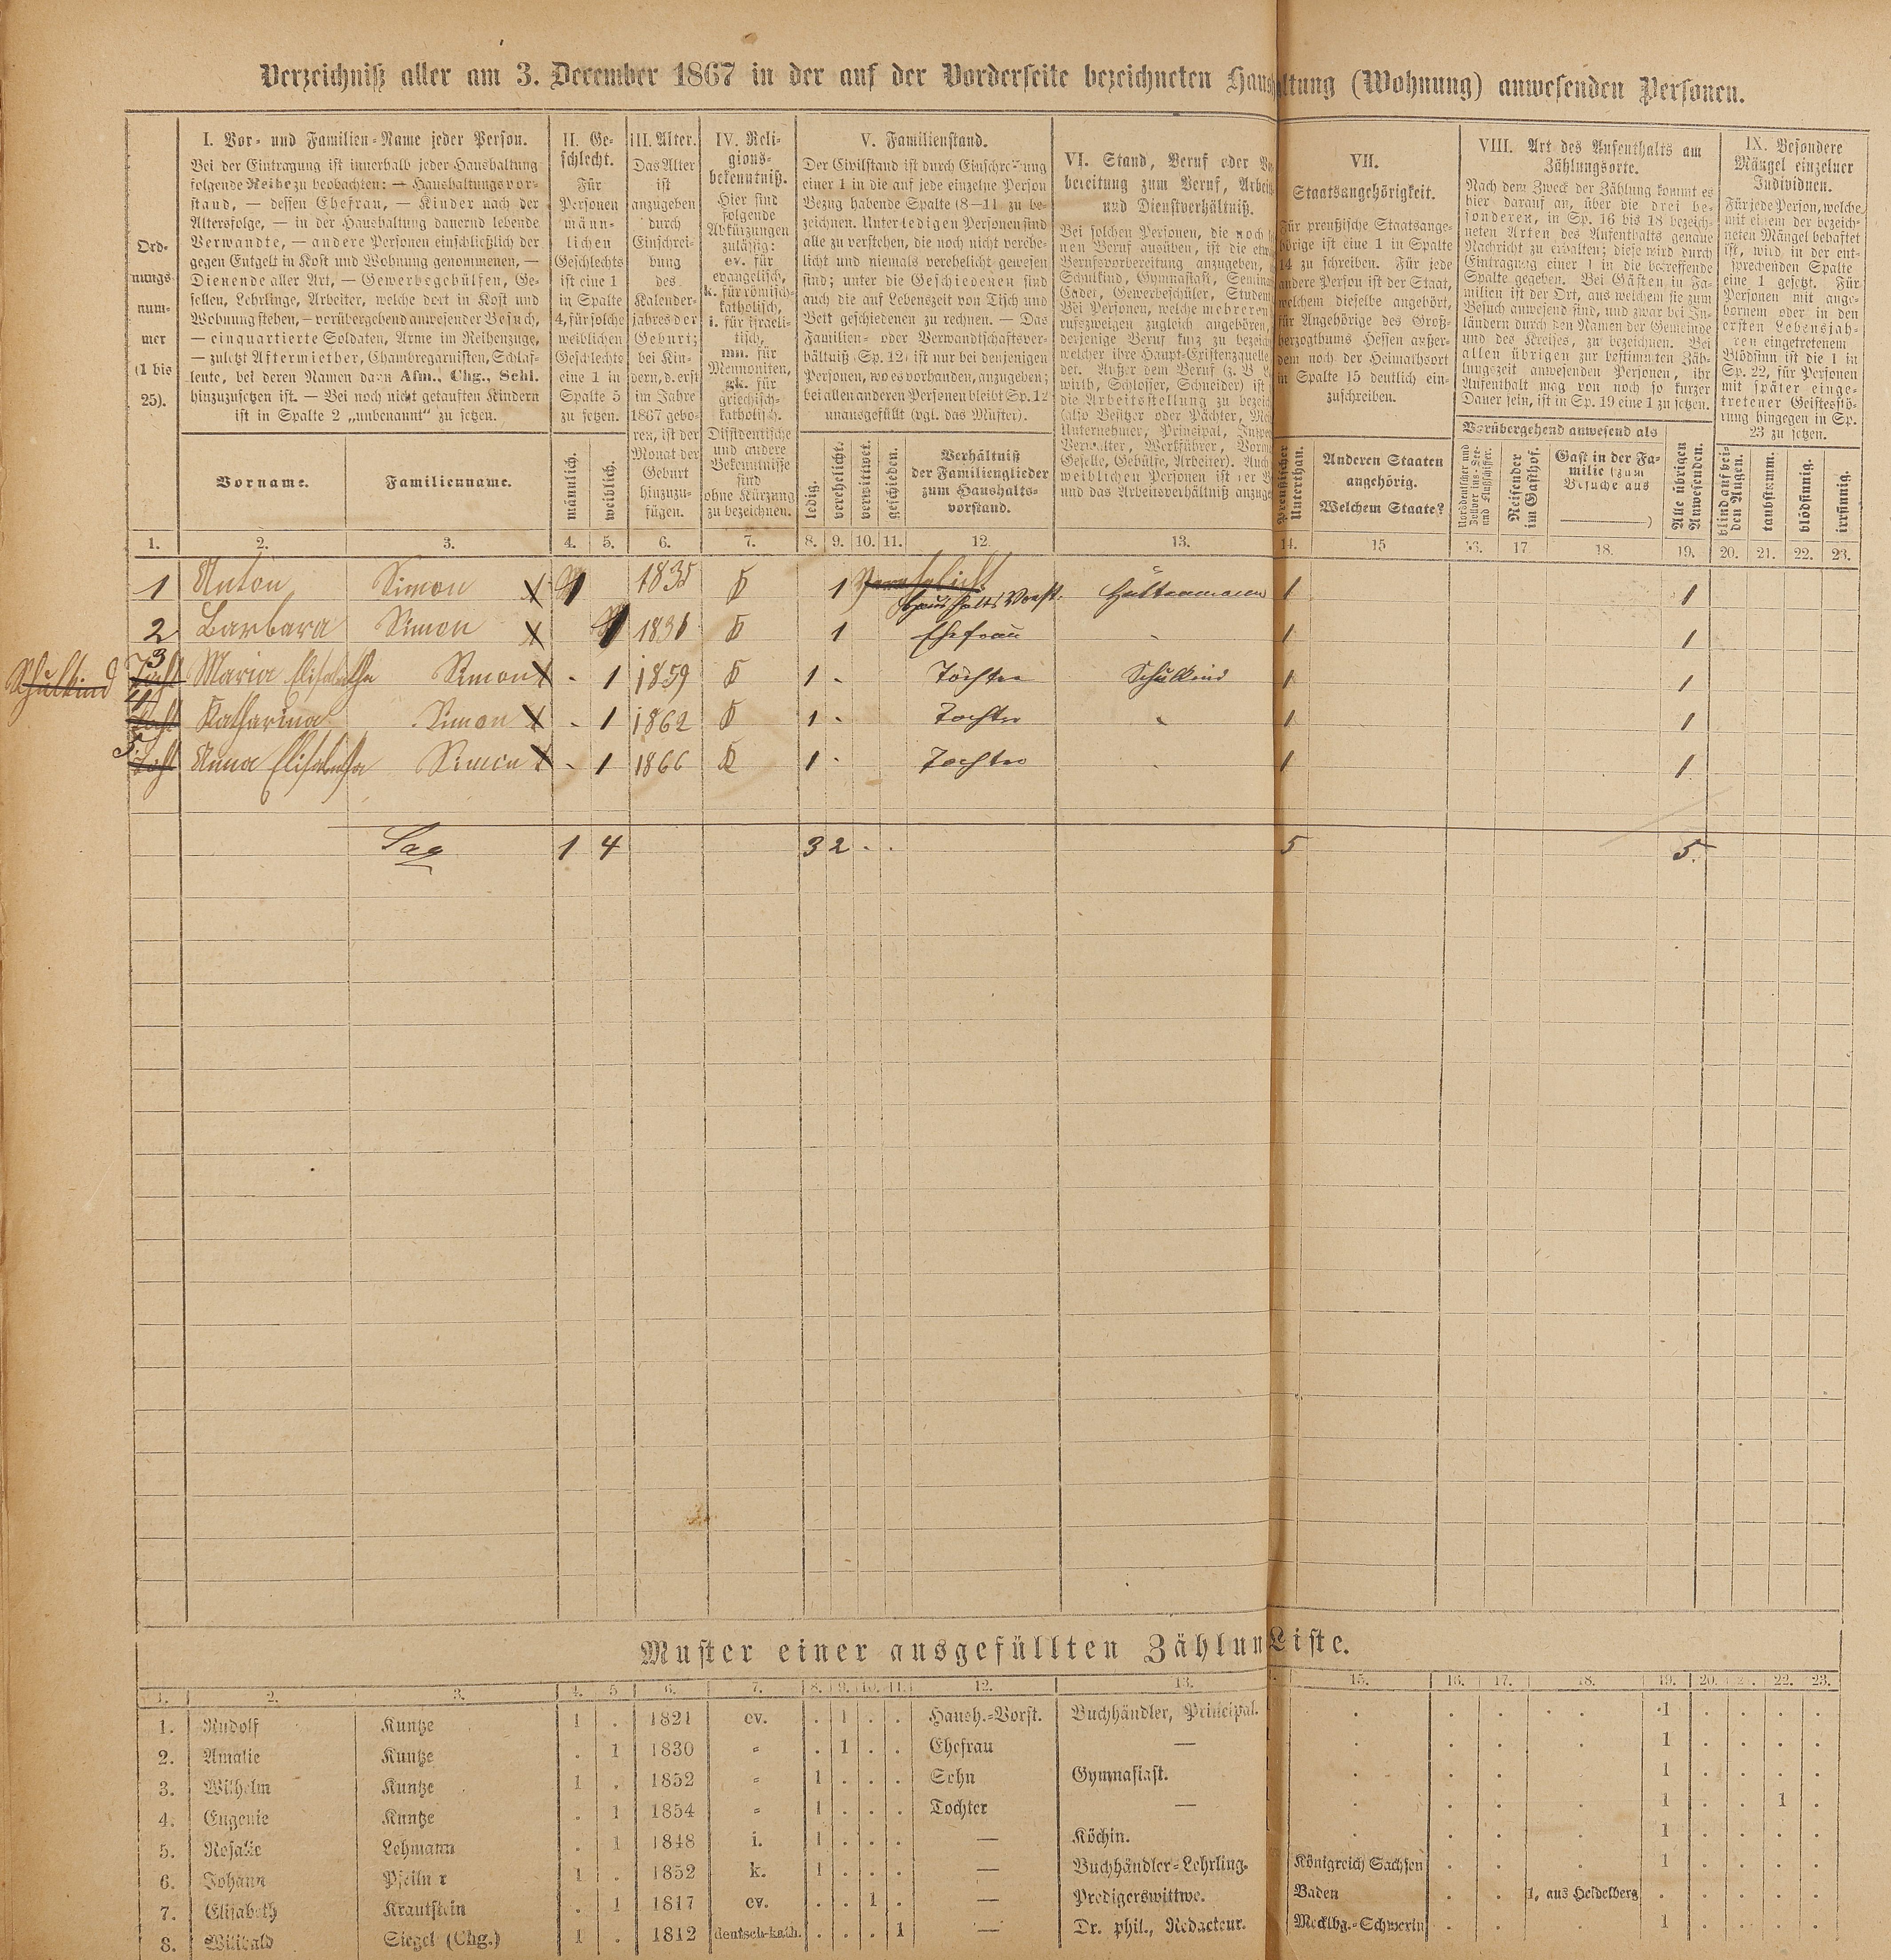 Verzeichniß aller am 3. December 1867 in der auf der Vorderseite bezeichneten Haushaltung (Wohnung) anwesenden Personen.
Ord-
nungs-
num-
mer
(1 bis
25).
I. Vor- und Familien-Name jeder Person.
Bei der Eintragung ist innerhalb jeder Haushaltung
folgende Reihe zu beobachten: — Haushaltungsvor-
stand, — dessen Ehefrau, — Kinder nach der
Altersfolge, — in der Haushaltung dauernd lebende
Verwandte, — andere Personen einschließlich der
gegen Entgelt in Kost und Wohnung genommenen, —
Dienende aller Art, — Gewerbegehülfen, Ge-
sellen, Lehrlinge, Arbeiter, welche dort in Kost und
Wohnung stehen, — vorübergehend anwesender Besuch,
— einquartierte Soldaten, Arme im Reihenzuge,
— zuletzt Aftermiether, Chambregarnisten, Schlaf-
leute, bei deren Namen dann Afm., Chg., Schl.
hinzuzusetzen ist. — Bei noch nicht getauften Kindern
ist in Spalte 2 „unbenannt“ zu setzen.
Vorname.
Familienname.
II. Ge-
schlecht.
Für
Personen
männ-
lichen
Geschlechts
ist eine 1
in Spalte
4, für solche
weiblichen
Geschlechts
eine 1 in
Spalte 5
zu setzen.
männlich.
weiblich.
III. Alter.
Das Alter
ist
anzugeben
durch
Einschrei-
bung
des
Kalender-
jahres der
Geburt;
bei Kin-
dern, d. erst
im Jahre
1867 gebo-
ren, ist der
Monat der
Geburt
hinzuzu-
fügen.
IV. Reli-
gions-
bekenntniß.
Hier sind
folgende
Abkürzungen
zulässig:
ev. für
evangelisch,
k. für römisch-
katholisch,
i. für israeli-
tisch,
mn. für
Mennoniten,
gk. für
griechisch-
katholisch.
Dissidentische
und andere
Bekenntnisse
sind
ohne Kürzung
zu bezeichnen.
V. Familienstand.
Der Civilstand ist durch Einschreibung
einer 1 in die auf jede einzelne Person
Bezug habende Spalte (8—11) zu be-
zeichnen. Unter ledigen Personen sind
alle zu verstehen, die noch nicht verehe-
licht und niemals verehelicht gewesen
sind; unter die Geschiedenen sind
auch die auf Lebenszeit von Tisch und
Bett geschiedenen zu rechnen. — Das
Familien- oder Verwandtschaftsver-
hältniß (Sp. 12) ist nur bei denjenigen
Personen, wo es vorhanden, anzugeben;
bei allen anderen Personen bleibt Sp. 12
unausgefüllt (vgl. das Muster).
ledig.
verehelicht.
verwittwet.
geschieden.
Verhältniß
der Familienglieder
zum Haushalts-
vorstand.
VI. Stand, Beruf oder
bereitung zum Beruf,
und Dienstverhältniß.
Bei solchen Personen, die noch
nen Beruf ausüben, ist die
Berufsvorbereitung anzugeben,
Schulkind, Gymnasiast,
Cadet, Gewerbeschüler,
Bei Personen, welche mehreren
rufszweigen zugleich angehören,
derjenige Beruf kurz zu
welcher ihre Haupt-Existenzquelle
det. Außer dem Beruf (z. B.
wirth, Schlosser, Schneider) ist
die Arbeitsstellung zu
(also Besitzer oder Pächter,
Unternehmer, Principal,
Verwalter, Werkführer,
Geselle, Gehülfe, Arbeiter). Auch
weiblichen Personen ist der
und das Arbeitsverhältniß
VII.
Staatsangehörigkeit.
Für preußische Staatsange-
hörige ist eine 1 in Spalte
14 zu schreiben. Für jede
andere Person ist der Staat,
welchem dieselbe angehört,
für Angehörige des Groß-
herzogthums Hessen außer-
dem noch der Heimathsort
in Spalte 15 deutlich ein-
zuschreiben.
Preußischer
Unterthan.
Anderen Staaten
angehörig.
Welchem Staate?
VIII. Art des Aufenthalts am
Zählungsorte.
Nach dem Zweck der Zählung kommt es
hier darauf an, über die drei be-
sonderen, in Sp. 16 bis 18 bezeich-
neten Arten des Aufenthalts genaue
Nachricht zu erhalten; diese wird durch
Eintragung einer 1 in die betreffende
Spalte gegeben. Bei Gästen in Fa-
milien ist der Ort, aus welchem sie zum
Besuch anwesend sind, und zwar bei In-
ländern durch den Namen der Gemeinde
und des Kreises, zu bezeichnen. Bei
allen übrigen zur bestimmten Zäh-
lungszeit anwesenden Personen, ihr
Aufenthalt mag von noch so kurzer
Dauer sein, ist in Sp. 19 eine 1 zu setzen.
Vorübergehend anwesend als
Norddeutscher und
Zollvereins-See-
und Flußschiffer.
Reisender
im Gasthof.
Gast in der Fa-
milie (zum
Besuche aus
)
Alle übrigen
Anwesenden.
IX. Besondere
Mängel einzelner
Individuen.
Für jede Person, welche
mit einem der bezeich-
neten Mängel behaftet
ist, wird in der ent-
sprechenden Spalte
eine 1 gesetzt. Für
Personen mit ange-
bornem oder in den
ersten Lebensjah-
ren eingetretenem
Blödsinn ist die 1 in
Sp. 22, für Personen
mit später einge-
tretener Geistesstö-
rung hingegen in Sp.
23 zu setzen.
blind auf bei-
den Augen.
taubstumm.
blödsinnig.
irrsinnig.
1. 2. 3. 4. 5. 6. 7. 8. 9. 10. 11. 12. 13. 14. 15 16. 17 18. 19. 20. 21. 22. 23.
1 Anton Simon X 1 1835 K 1 Haushalts Vorst. Hüttenmann 1 1
2 Barbara Simon X 1 1831 K 1 Ehefrau - 1 1
Schulkind 3 Maria Elisabetha Simon X - 1 1859 K 1 - Tochter Schulkind 1 1
4 Katharina Simon X - 1 1862 K 1 - Tochter 1 1
5 Anna Elisabetha Simon X - 1 1866 K 1 - Tochter 1 1
1 4 3 2 . . 5 5.
Muster einer ausgefüllten Zählun Liste.
1. 2. 3. 4. 5 6. 7. 8. 9. 10. 11. 12. 13. 15. 16. 17. 18. 19. 20. 22. 23.
1. Rudolf Kuntze 1 . 1821 ev. . 1 . . Haush.-Vorst. Buchhändler, Principal. . . . . 1 . . . .
2. Amalie Kuntze . 1 1830 „ . 1 . . Ehefrau — . . . . 1 . . . .
3. Wilhelm Kuntze 1 . 1852 „ 1 . . . Sohn Gymnasiast. . . . . 1 . . . .
4. Eugenie Kuntze . 1 1854 „ 1 . . . Tochter — . . . . 1 . . 1 .
5. Rosalie Lehmann . 1 1848 i. 1 . . . — Köchin. . . . . 1 . . . .
6. Johann Pfeiln r 1 . 1852 k. 1 . . . — Buchhändler-Lehrling. Königreich Sachsen . . . 1 . . . .
7. Elisabeth Krautstein . 1 1817 ev. . . 1 . — Predigerswittwe. Baden . . 1, aus Heidelberg . . . . .
8. Willibald Siegel (Chg.) 1 . 1812 deutsch-kath. . . . 1 — Dr. phil., Redacteur. Mecklbg.-Schwerin . . . 1 . . . .